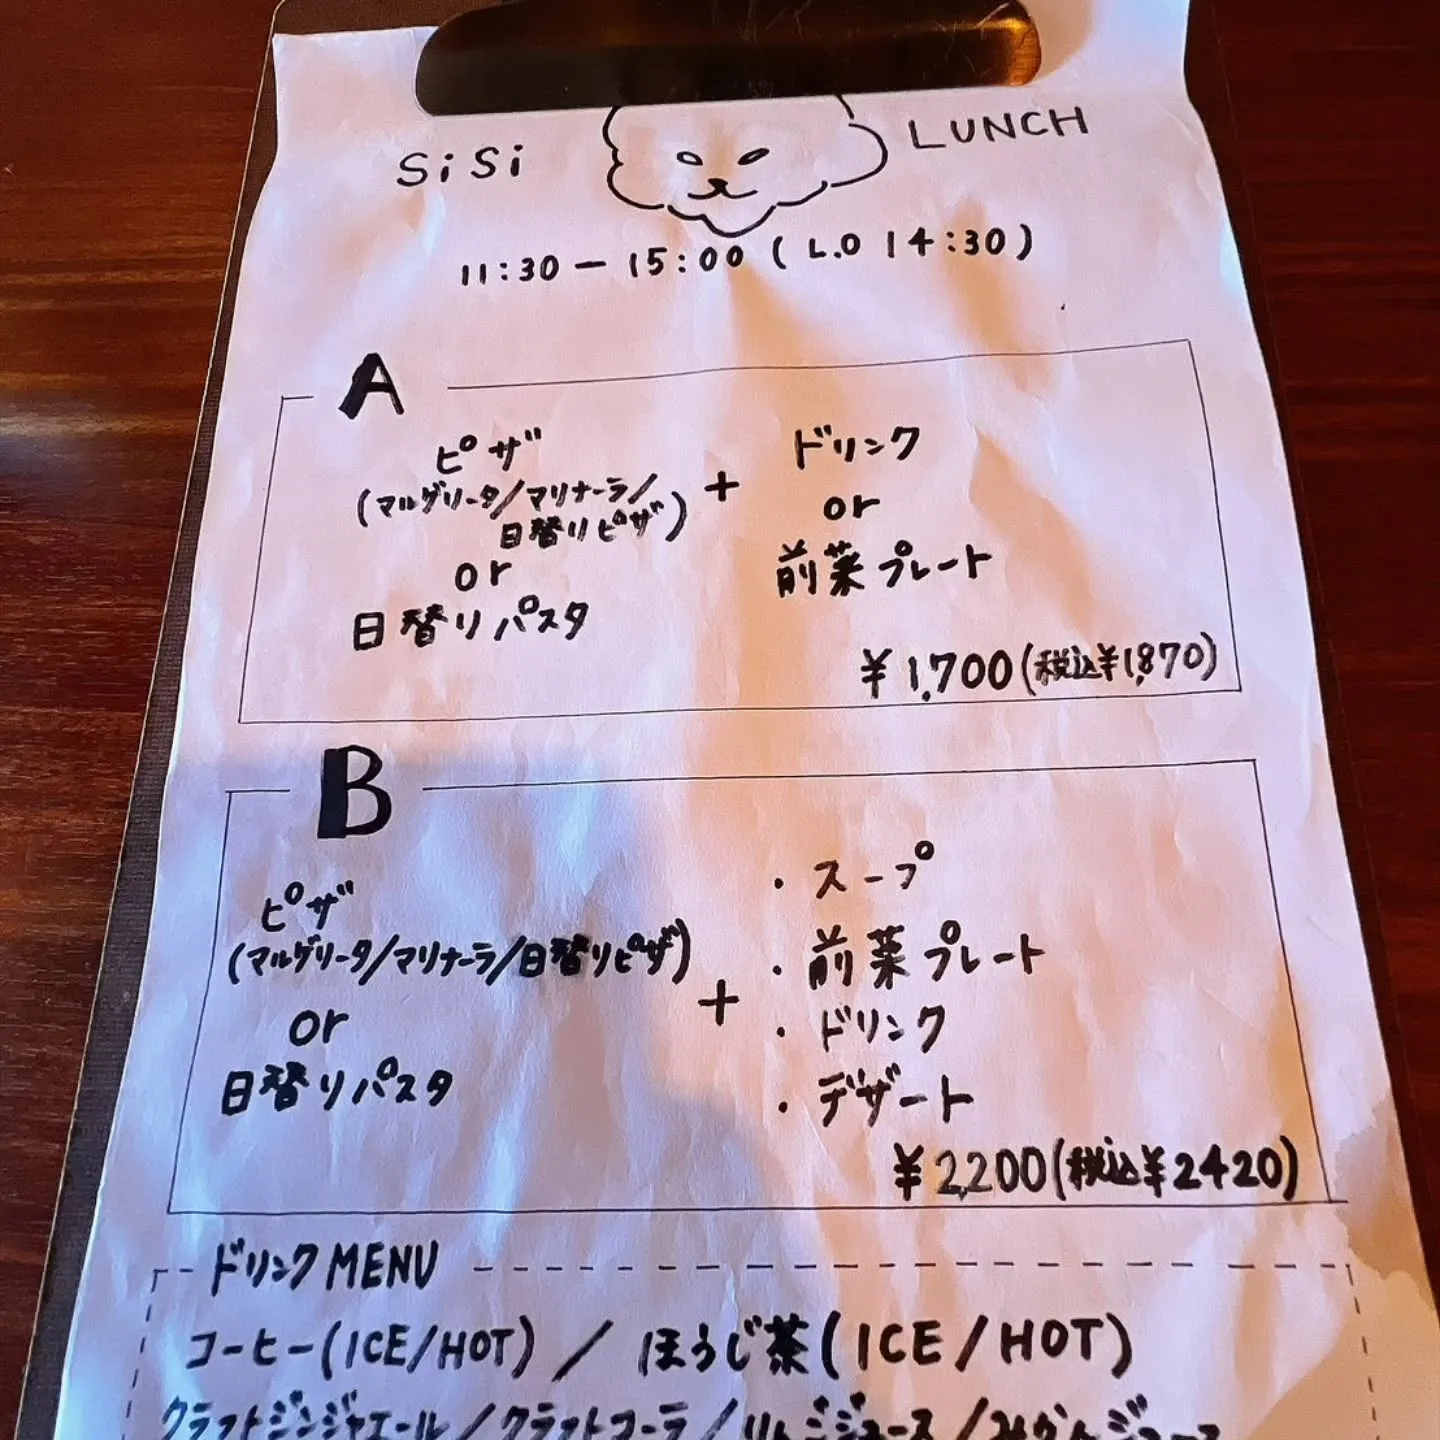 SiSi LUNCH
11:30 - 15:00 (L.O 14:30)
A
ピザ
(マルゲリータ/マリナーラ/
日替りピザ)
or
日替りパスタ
+
ドリンク
or
前菜プレート
¥1,700(税込¥1,870)
B
ピザ
(マルゲリータ/マリナーラ/日替りピザ)
or
日替りパスタ
+
・スープ
・前菜プレート
・ドリンク
・デザート
¥2,200(税込¥2420)
ドリンクMENU
コーヒー(ICE/HOT) / ほうじ茶(ICE/HOT)
クラフトジンジャエール/クラフトコーラ/りんごジュース/みかんジュース